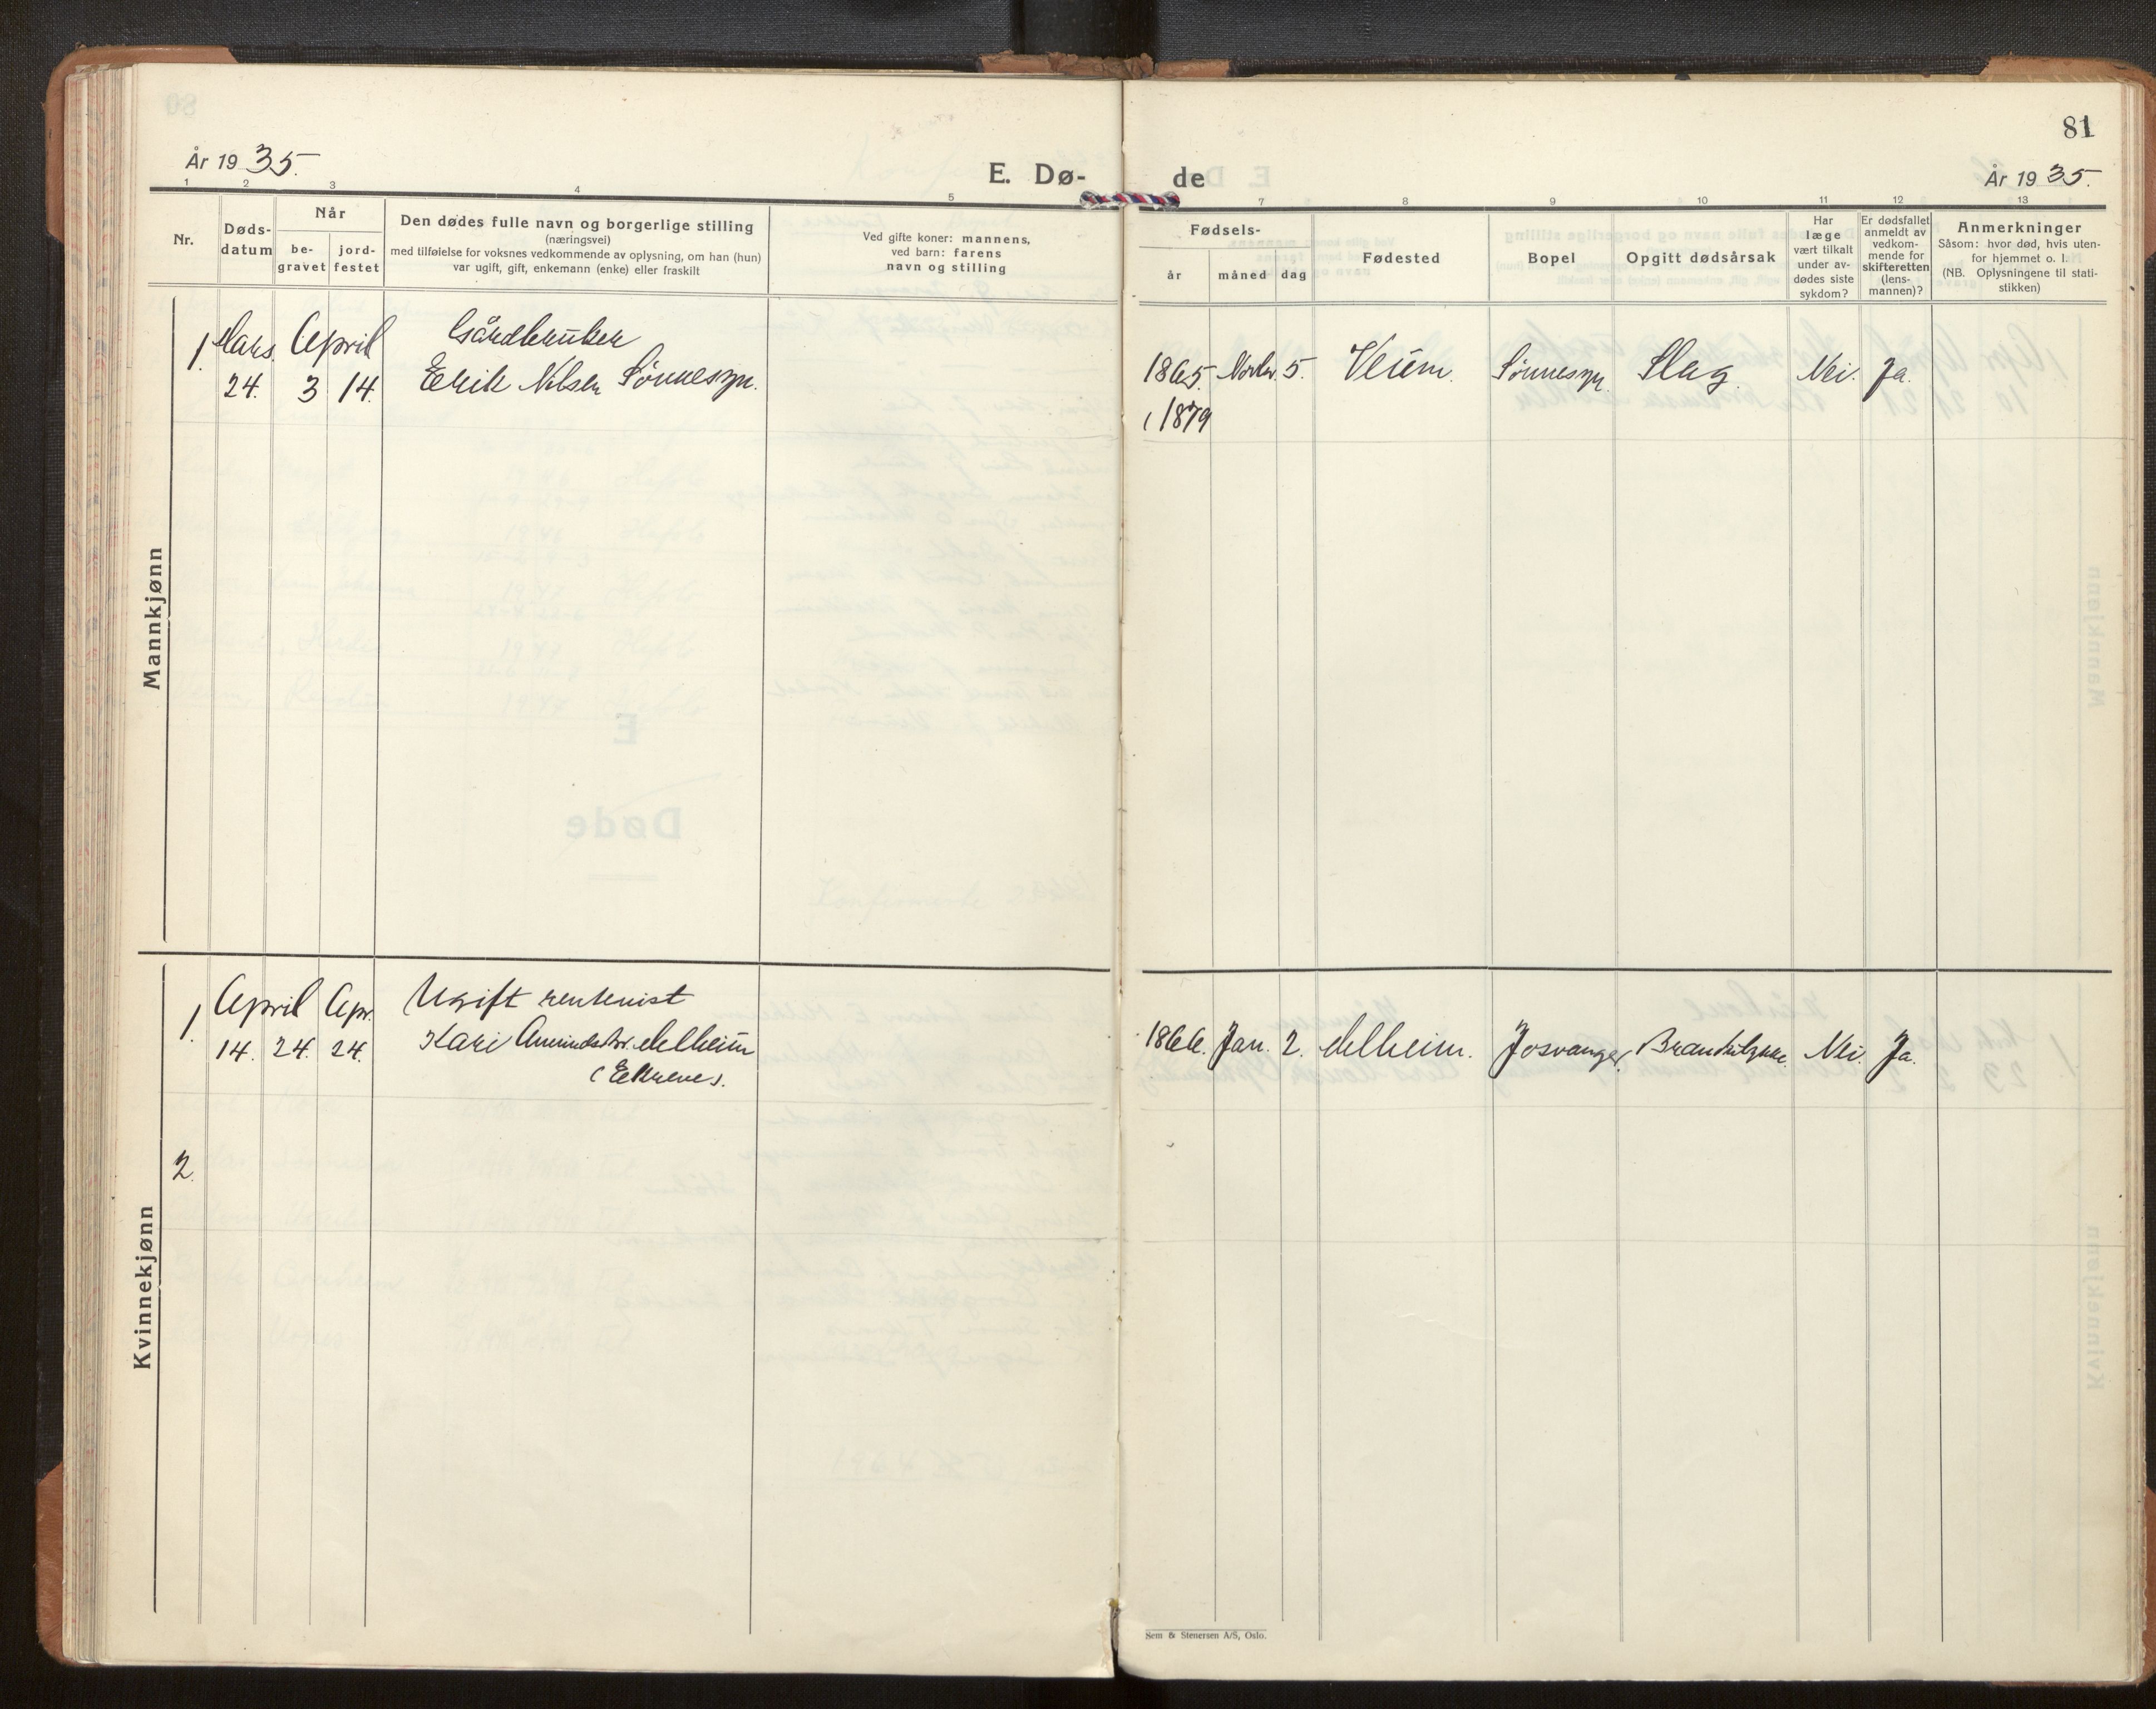 81
År 1935.
E. Dø-
de
År 1935.
1 2 3 4 5
7 8 9 10 11 12 13
Nr.
Døds-
datum
Når
be-
gravet
jord-
festet
Den dødes fulle navn og borgerlige stilling
(næringsvei)
med tilføielse for voksnes vedkommende av oplysning, om han (hun)
var ugift, gift, enkemann (enke) eller fraskilt
Ved gifte koner: mannens,
ved barn: farens
navn og stilling
Fødsels-
år
måned
dag
Fødested
Bopel
Opgitt dødsårsak
Har
læge
vært tilkalt
under av-
dødes siste
sykdom?
Er dødsfallet
anmeldt av
vedkom-
mende for
skifteretten
(lens-
mannen)?
Anmerkninger
Såsom: hvor død, hvis uten-
for hjemmet o. l.
(NB. Oplysningene til stati-
stikken)
Mannkjønn
1. Mars April Gårdbruker
24. 3 14. Eerik Nilsen Sønnesyn.
1865. Novbr. 5. Veum. Sønnesyn. Slag. Nei. Ja.
(1879
Kvinnekjønn
1. April Apr. Ugift rentenist
14. 24. 24. Kari Elleim
(Eikrene).
1866. Jan. 2. Elleim. Josvanger. Nei. Ja.
2.
Sem & Stenersen A/S, Oslo.